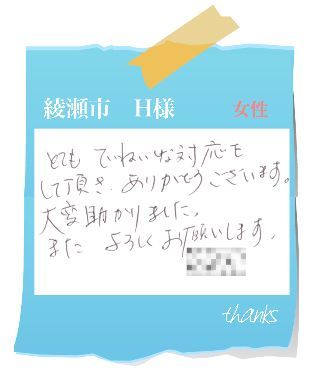 綾瀬市　H様　女性
とても ていねいな対応を
して頂き、ありがとうございます。
大変助かりました。
また よろしくお願いします。
thanks